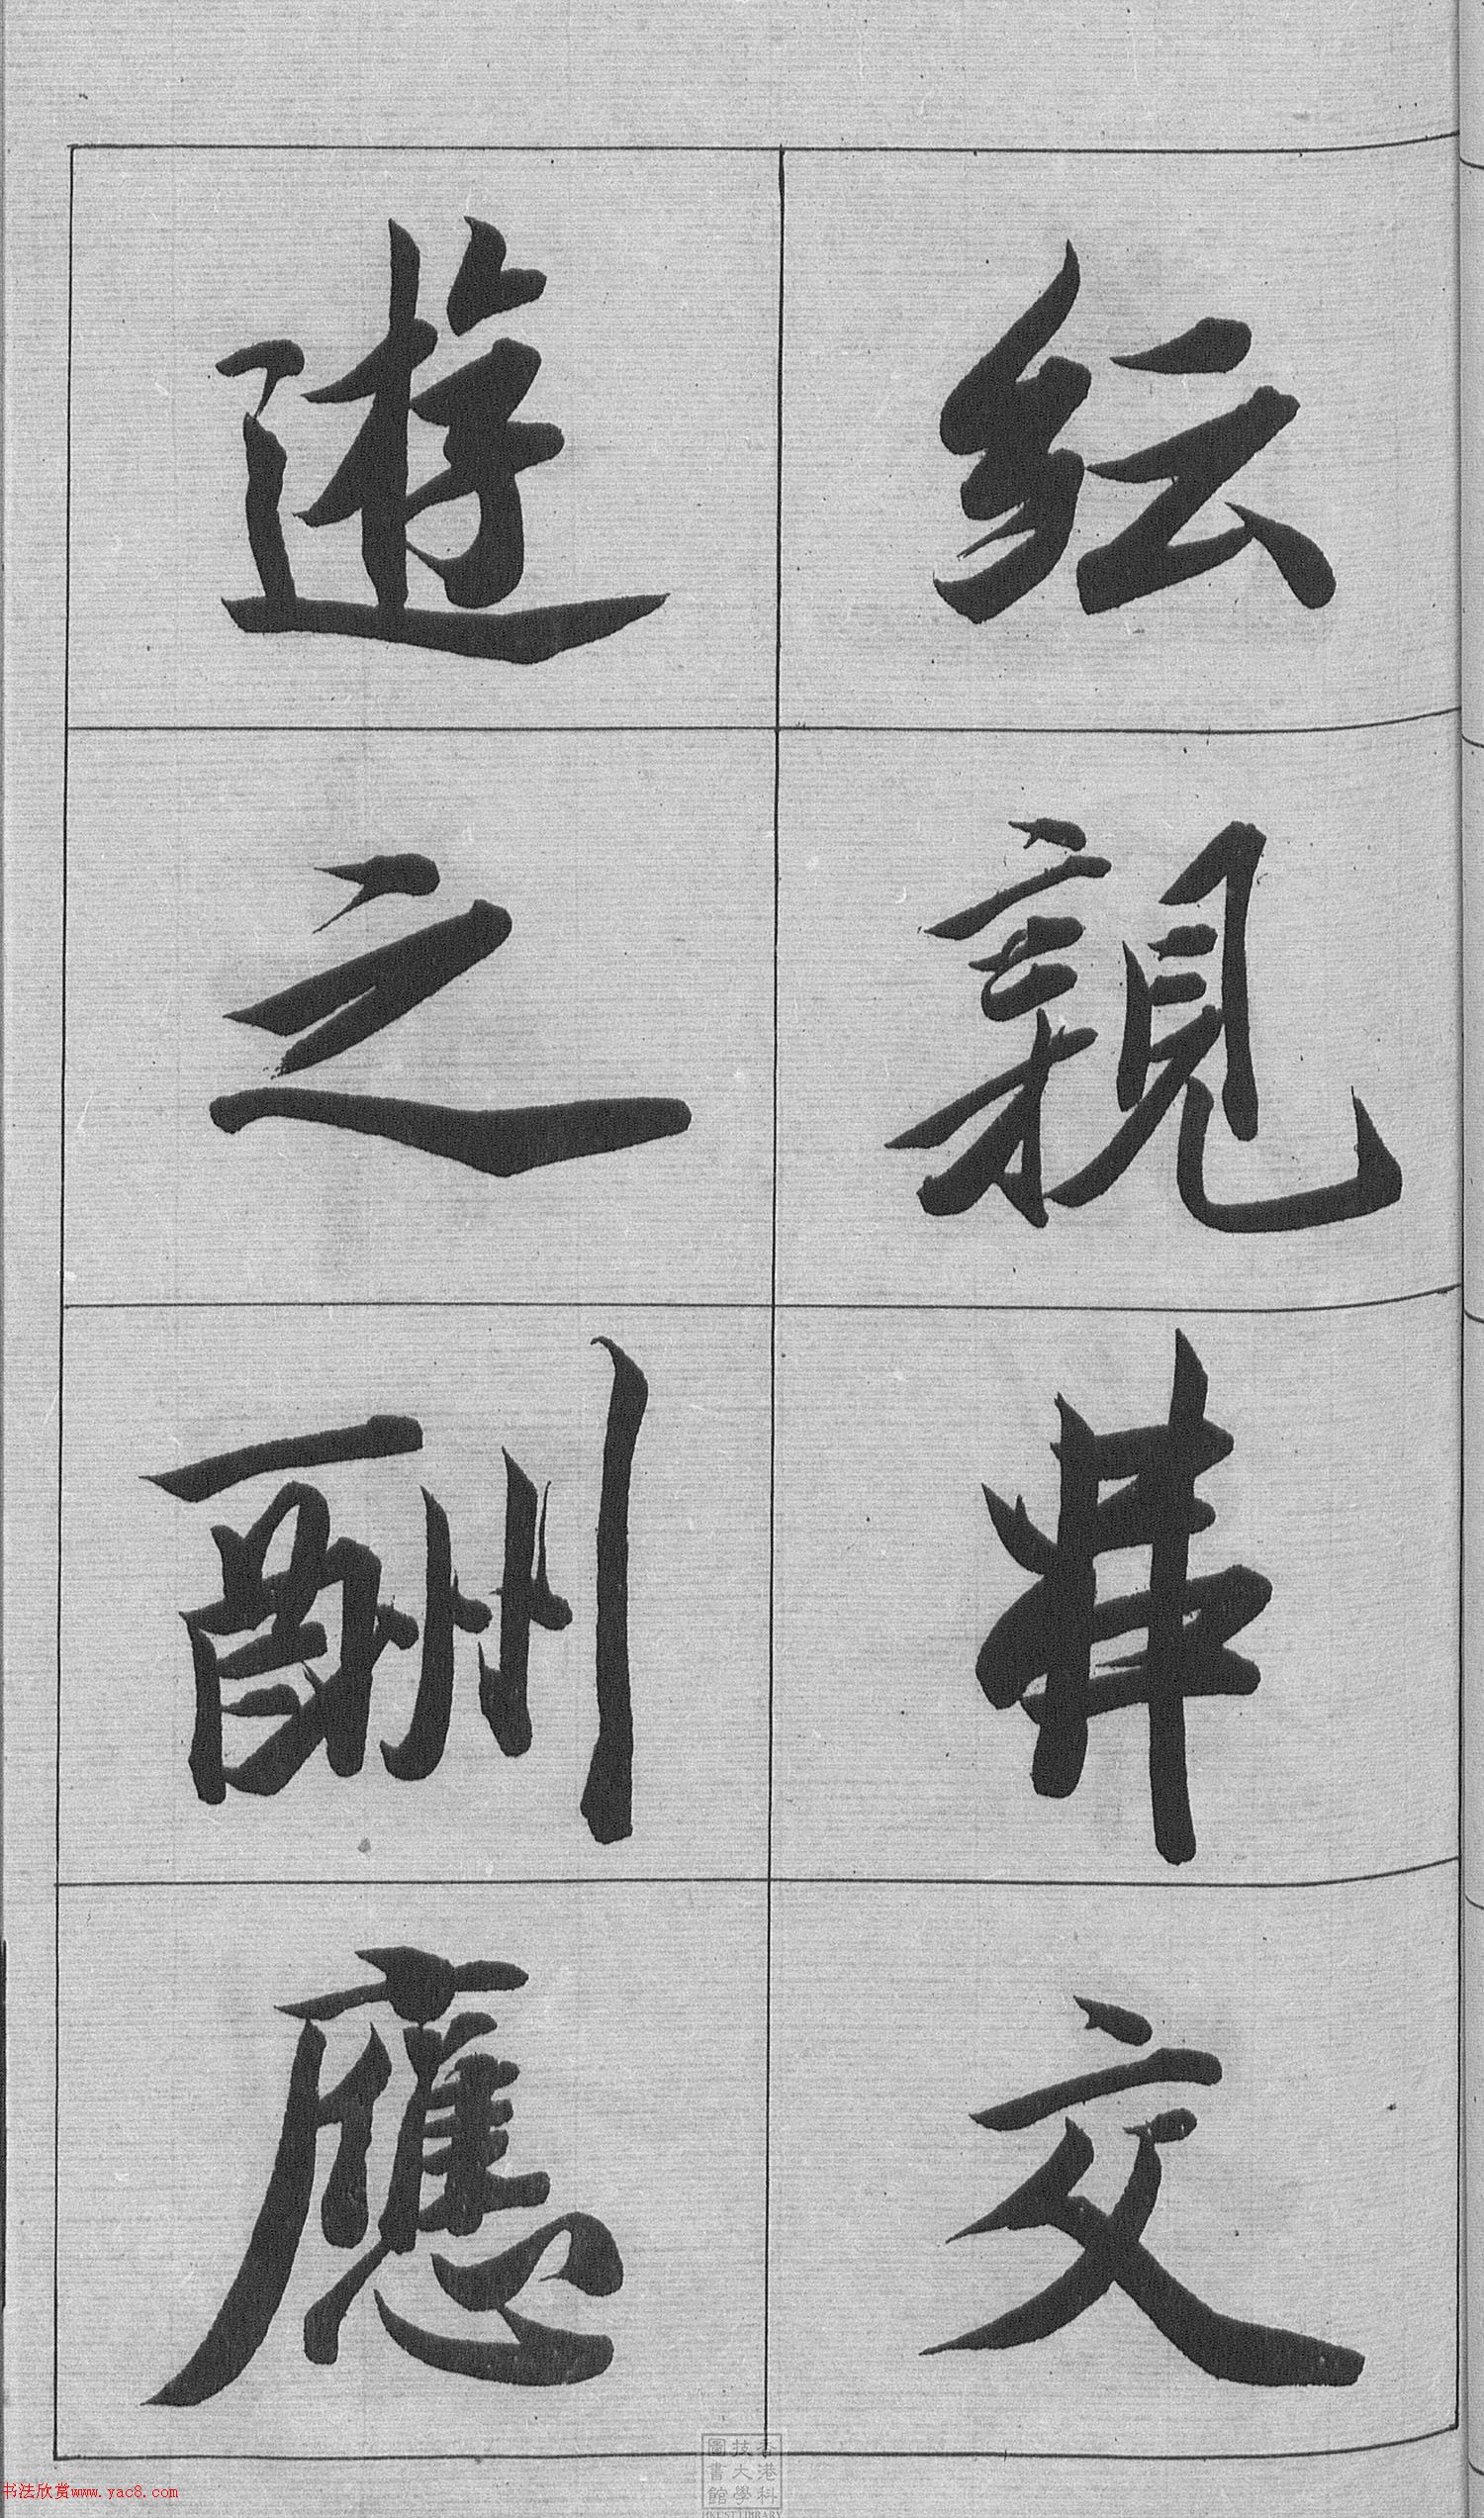 紜親拜交
遊之酬應
香港科
技大學
圖書館
HKUST LIBRARY
书法欣赏www.yac8.com